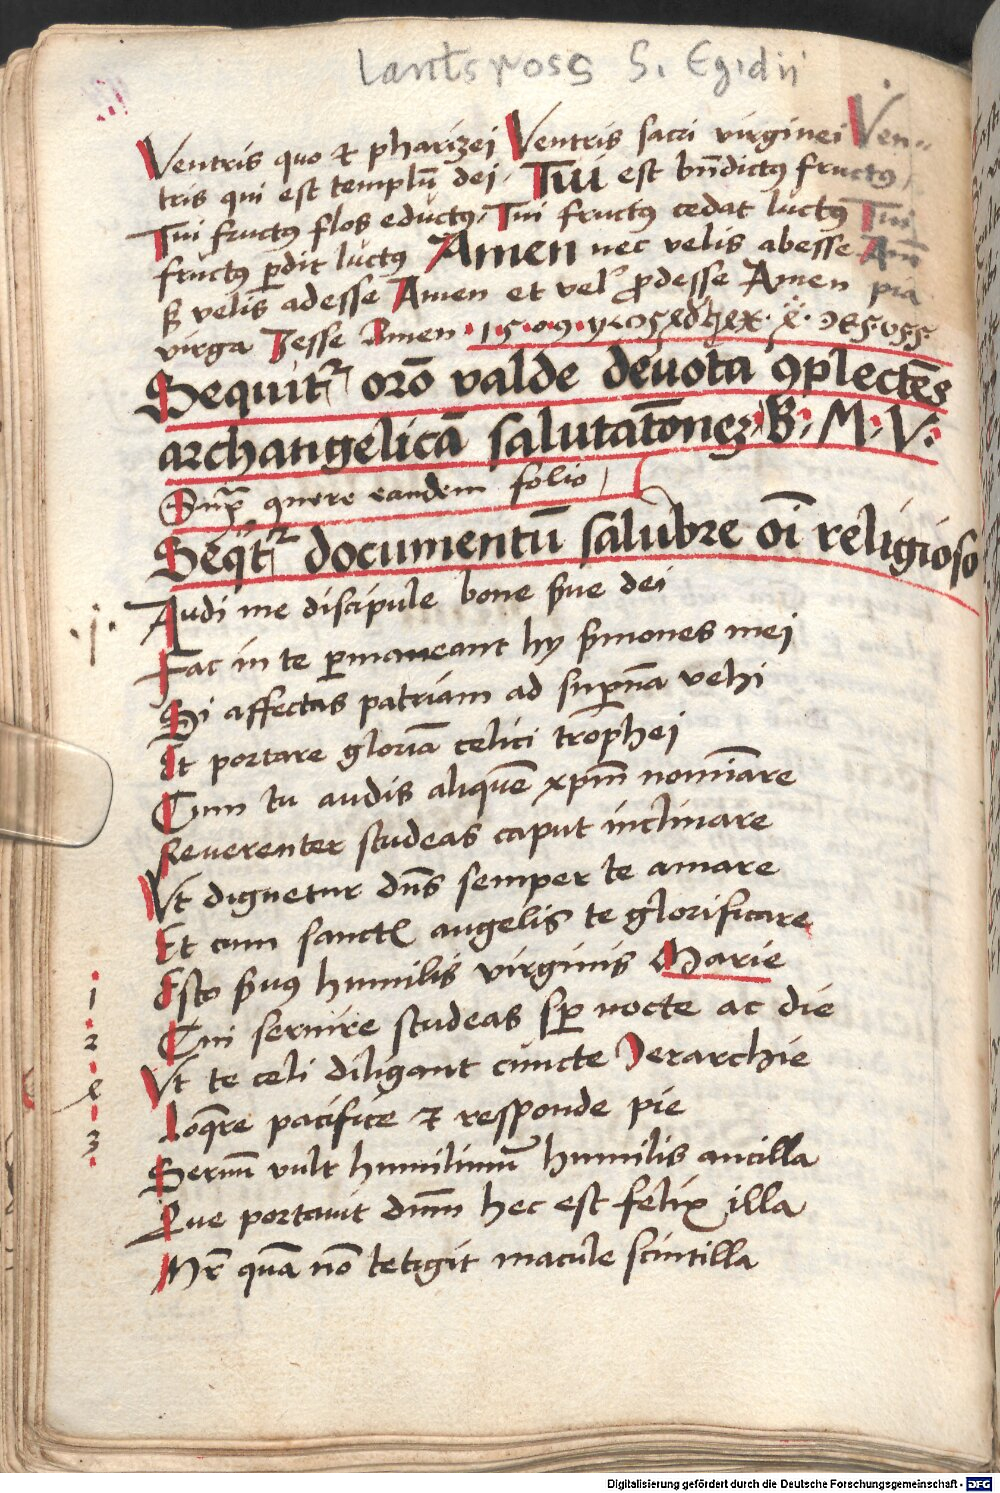 Lantsross S. Egidii
Ventris quo et pharizei Ventris sacri virginei Ven=
tris qui est templū dei. Tui est bn̄dictꝰ fructꝰ
Tui fructꝰ flos eductꝰ. Tui fructꝰ cedat luctꝰ Tui
fructꝰ ꝑdit luctꝰ Amen nec velis abesse Am̄
velis adesse Amen et vel ꝓdesse Amen pia
virga Jesse Amen . 15.09.
Sequit̉ or̄o valde deuota ꝯplectēs
archangelicā salutatōneꝫ. B. M. V.
Supͣ quere eandem folio
Seqt̉ documentū salubre oī religioso
.j. Audi me discipule bone ẜue dei
Fac in te ꝑmaneant hy ẜmones mei
Si affectas patriam ad suꝑnā vehi
Et portare gloriā celici trophei
Cum tu audis aliquē xp̄m nomīare
Reuerenter studeas caput inclinare
Vt dignetur dn̄s semper te amare
Et cum sanctꝭ angelis te glorificare
Esto ẜuꝰ humilis virginis Marie
Cui seruire studeas sꝑ nocte ac die
Vt te celi diligant cuncte Jerarchie
Loq̄re pacifice et responde pie
Seruū vult humilimū humilis ancilla
Que portauit dn̄m hec est felix illa
Mr̄ quā nō tetigit macule scintilla
1
2
ℓ
3
Digitalisierung gefördert durch die Deutsche Forschungsgemeinschaft - DFG